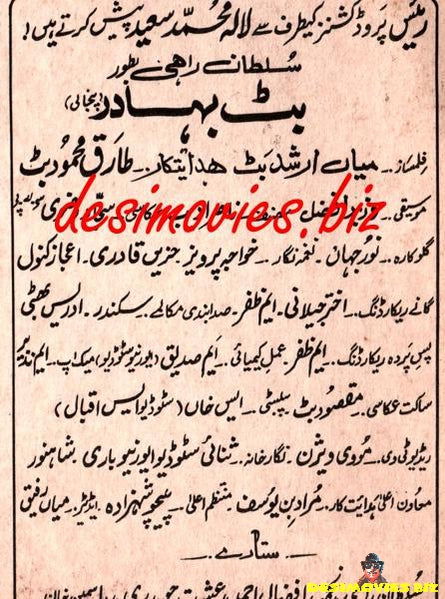 رئیس پروڈکشنز کیطرف سے لالہ محمد سعید پیش کرتے ہیں!
سلطان راہی بطور
بٹ بہادر (پنجابی)
فلمساز... میاں ارشد بٹ ہدایتکار... طارق محمود بٹ
موسیقی... وزیر افضل
desimovies.biz
گلوکارہ... نورجہاں... نغمہ نگار... خواجہ پرویز حزیں قادری. اعجاز کنول
گانے ریکارڈنگ... اختر جیلانی. ایم ظفر. صدابندی مکالمے... سکندر.. ادریس بھٹی
پس پردہ ریکارڈنگ... ایم ظفر عمل کیمیائی... ایم صدیق (ایورنیو سٹوڈیو) میک اپ... ایم نذیر
ساکت عکاسی... مقصود بٹ پبلسٹی... ایس خاں (سٹوڈیو ایس اقبال)
ریڈیو ٹی وی... مووی ویژن.. نگارخانہ... ثنائی سٹوڈیو ایورنیو باری. شاہنور
معاون اعلیٰ ہدایت کار... مراد بن یوسف. منتظم اعلیٰ... پیجو شہزادہ. ایڈیٹر.. میاں رفیق
... ستارے ...
افضال احمد. عشرت چوہدری
DESIMOVIES.BIZ